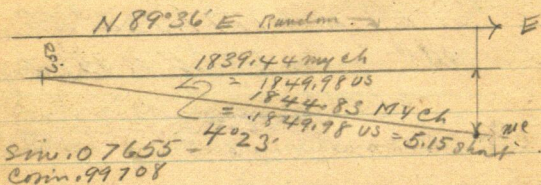 N 89°36' E Random E
1839.44 my ch
= 1849.98 US
1844.83 MY Ch
= 1849.98 US = 5.15 short
4°23'
mc
sin .07655
Cosin .99708